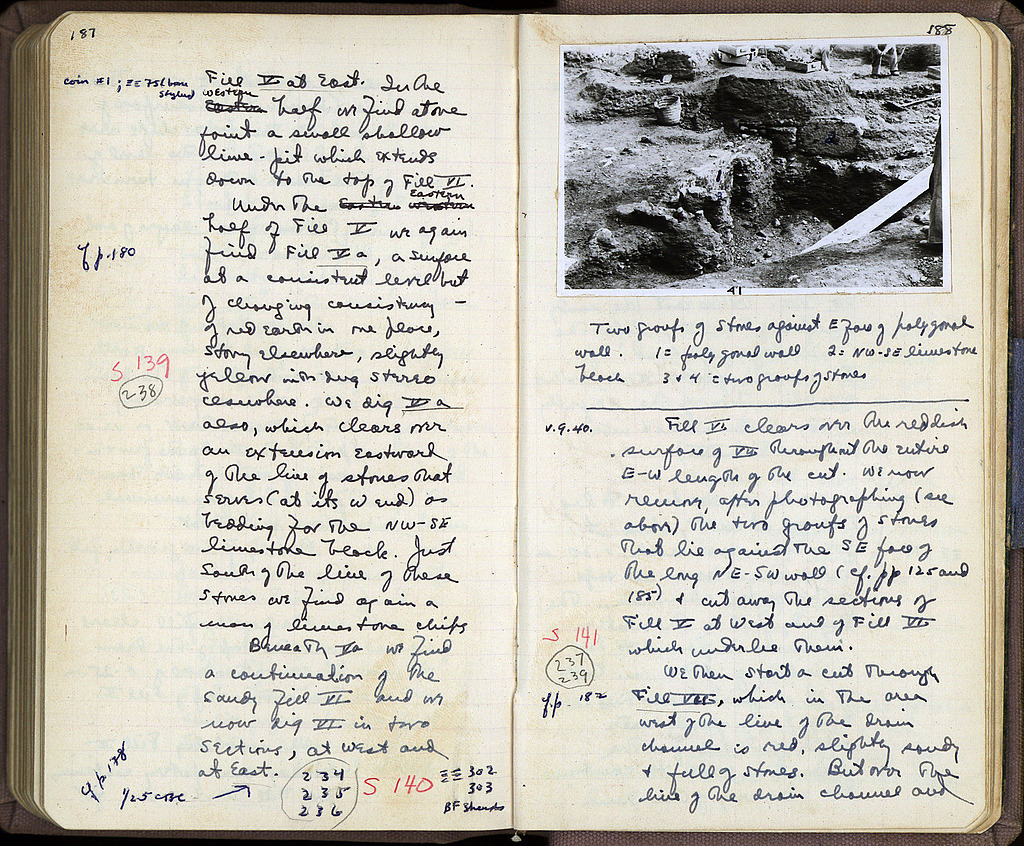 187
coin #1; ΞΞ 75 bone
stylus
Fill V at East. In the
western
Eastern half we find at one
point a small shallow
lime-pit which extends
down to the top of Fill VI.
Eastern
Under the Eastern western
half of Fill V we again
cf p. 180
find Fill Va, a surface
at a consistent level but
of changing consistency —
of red earth in one place,
stony elsewhere, slightly
S 139
238
yellow with dug stereo
elsewhere. We dig Va
also, which clears over
an extension eastward
of the line of stones that
serves (at its W end) as
bedding for the NW-SE
limestone block. Just
South of the line of these
stones we find again a
mass of limestone chips
Beneath Va we find
a continuation of the
sandy fill VI and we
now dig VI in two
sections, at West and
at East.
cf p 178
234
235
236
S 140
ΞΞ 302
303
BF sherds
188
41
Two groups of stones against E face of polygonal
wall. 1 = polygonal wall 2 = NW-SE limestone
block 3 + 4 = two groups of stones
v.9.40.
Fill VI clears over the reddish
surface of VII throughout the entire
E-W length of the cut. We now
remove, after photographing (see
above) the two groups of stones
that lie against the SE face of
the long NE-SW wall (cf. pp 125 and
185) + cut away the sections of
Fill V at West and of Fill VI
which underlie them.
S 141
237
239
We then start a cut through
cf p. 182
Fill VII, which in the area
west of the line of the drain
channel is red, slightly sandy
+ full of stones. But over the
line of the drain channel and